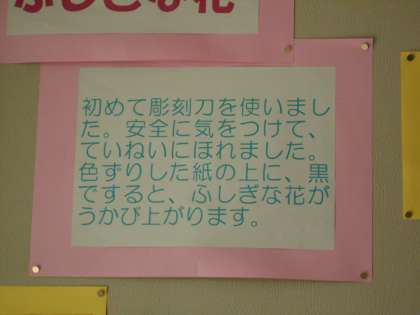 ふしぎな花
初めて彫刻刀を使いまし
た。安全に気をつけて、
ていねいにほれました。
色ずりした紙の上に、黒
でするど、ふしぎな花が
うかび上がります。